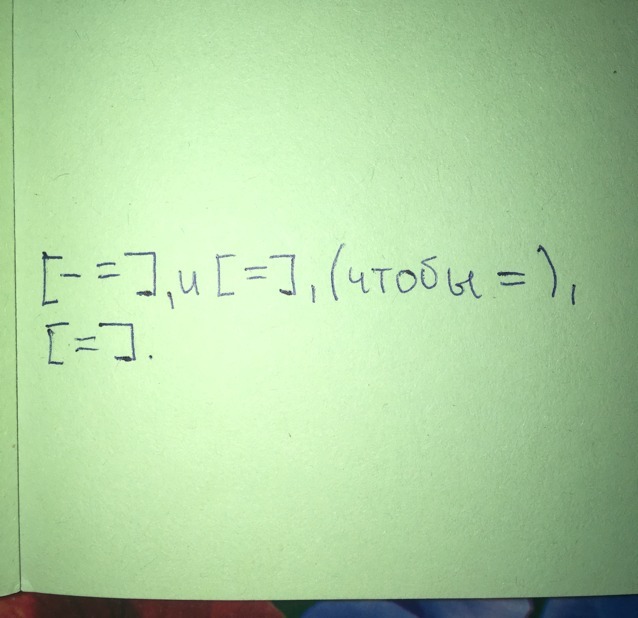 [- =], и [=], (чтобы =),
[=].